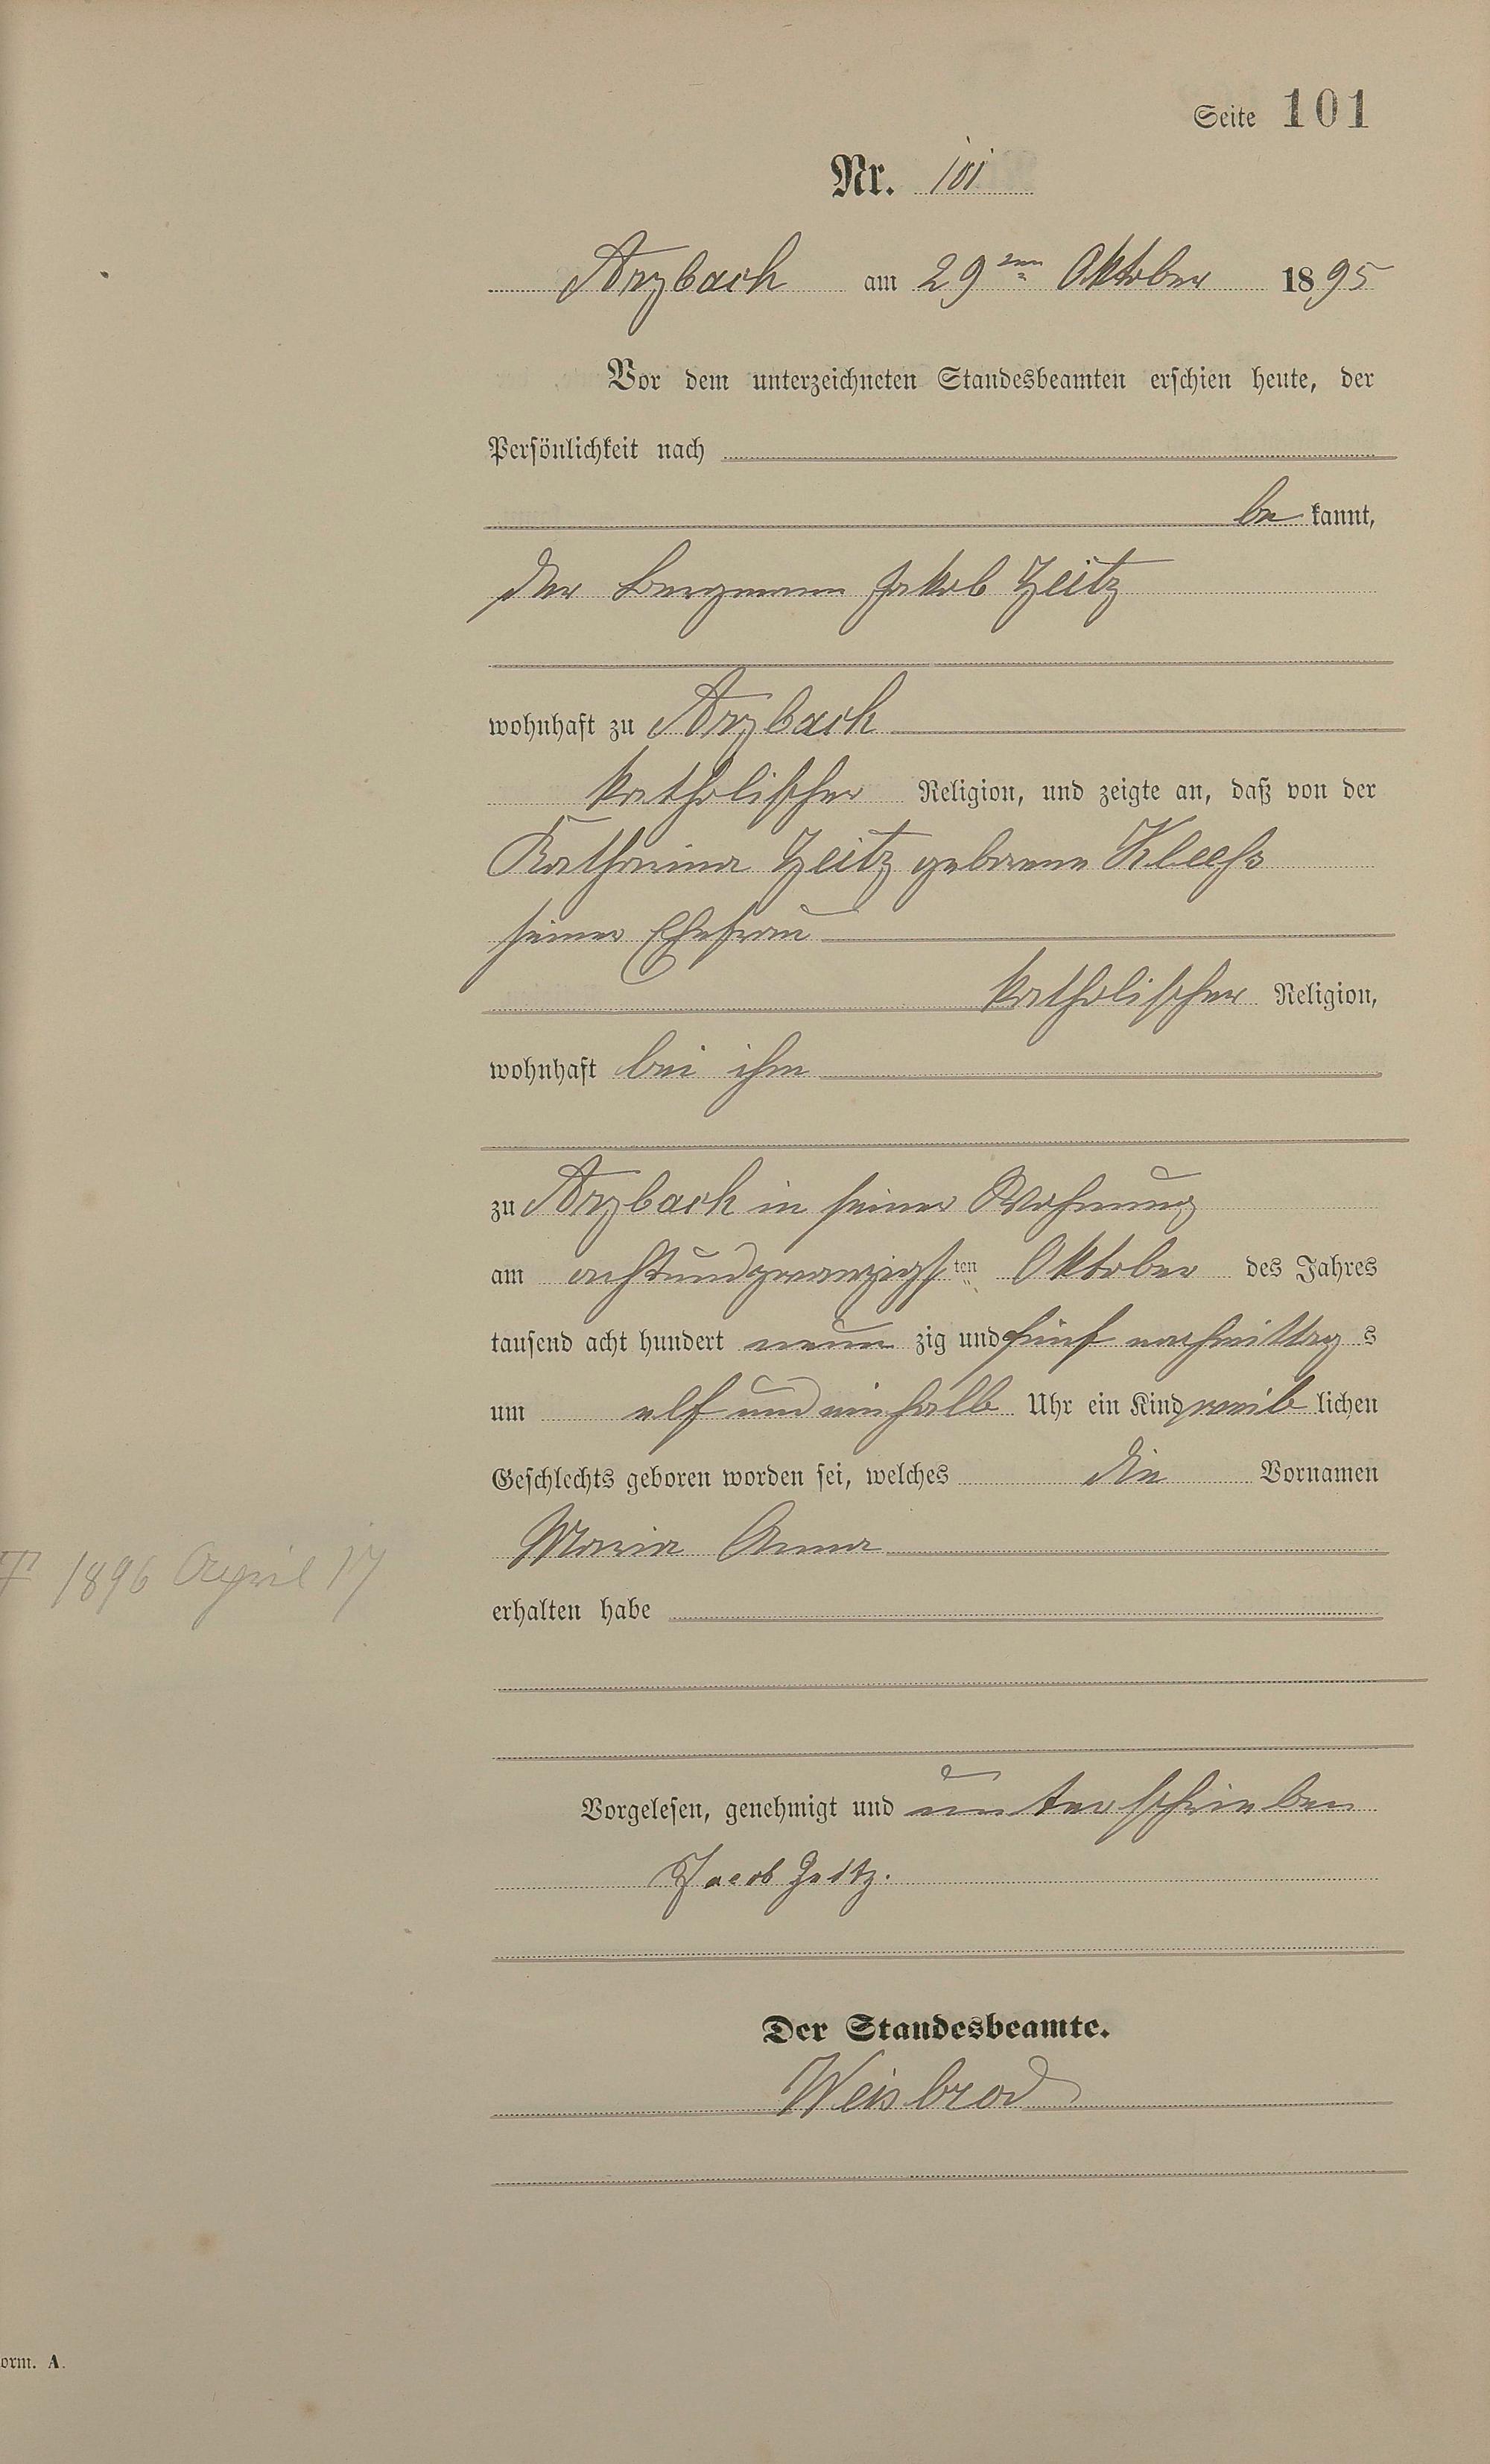 Seite 101
Nr. 101
Arzbach am 29ten Oktober 1895
Vor dem unterzeichneten Standesbeamten erschien heute, der
Persönlichkeit nach
be kannt,
der Bergmann Jakob Zeitz
wohnhaft zu Arzbach
katholischer Religion, und zeigte an, daß von der
Katharina Zeitz geborene Kleeß
seiner Ehefrau
katholischer Religion,
wohnhaft bei ihm
zu Arzbach in seiner Wohnung
am achtundzwanzigsten Oktober des Jahres
tausend acht hundert neun zig und fünf nachmittag s
um elf und einhalb Uhr ein Kind weib lichen
Geschlechts geboren worden sei, welches die Vornamen
Maria Anna
† 1896 April 17
erhalten habe
Vorgelesen, genehmigt und unterschrieben
Jacob Zeitz.
Der Standesbeamte.
Weisbrod
orm. A.